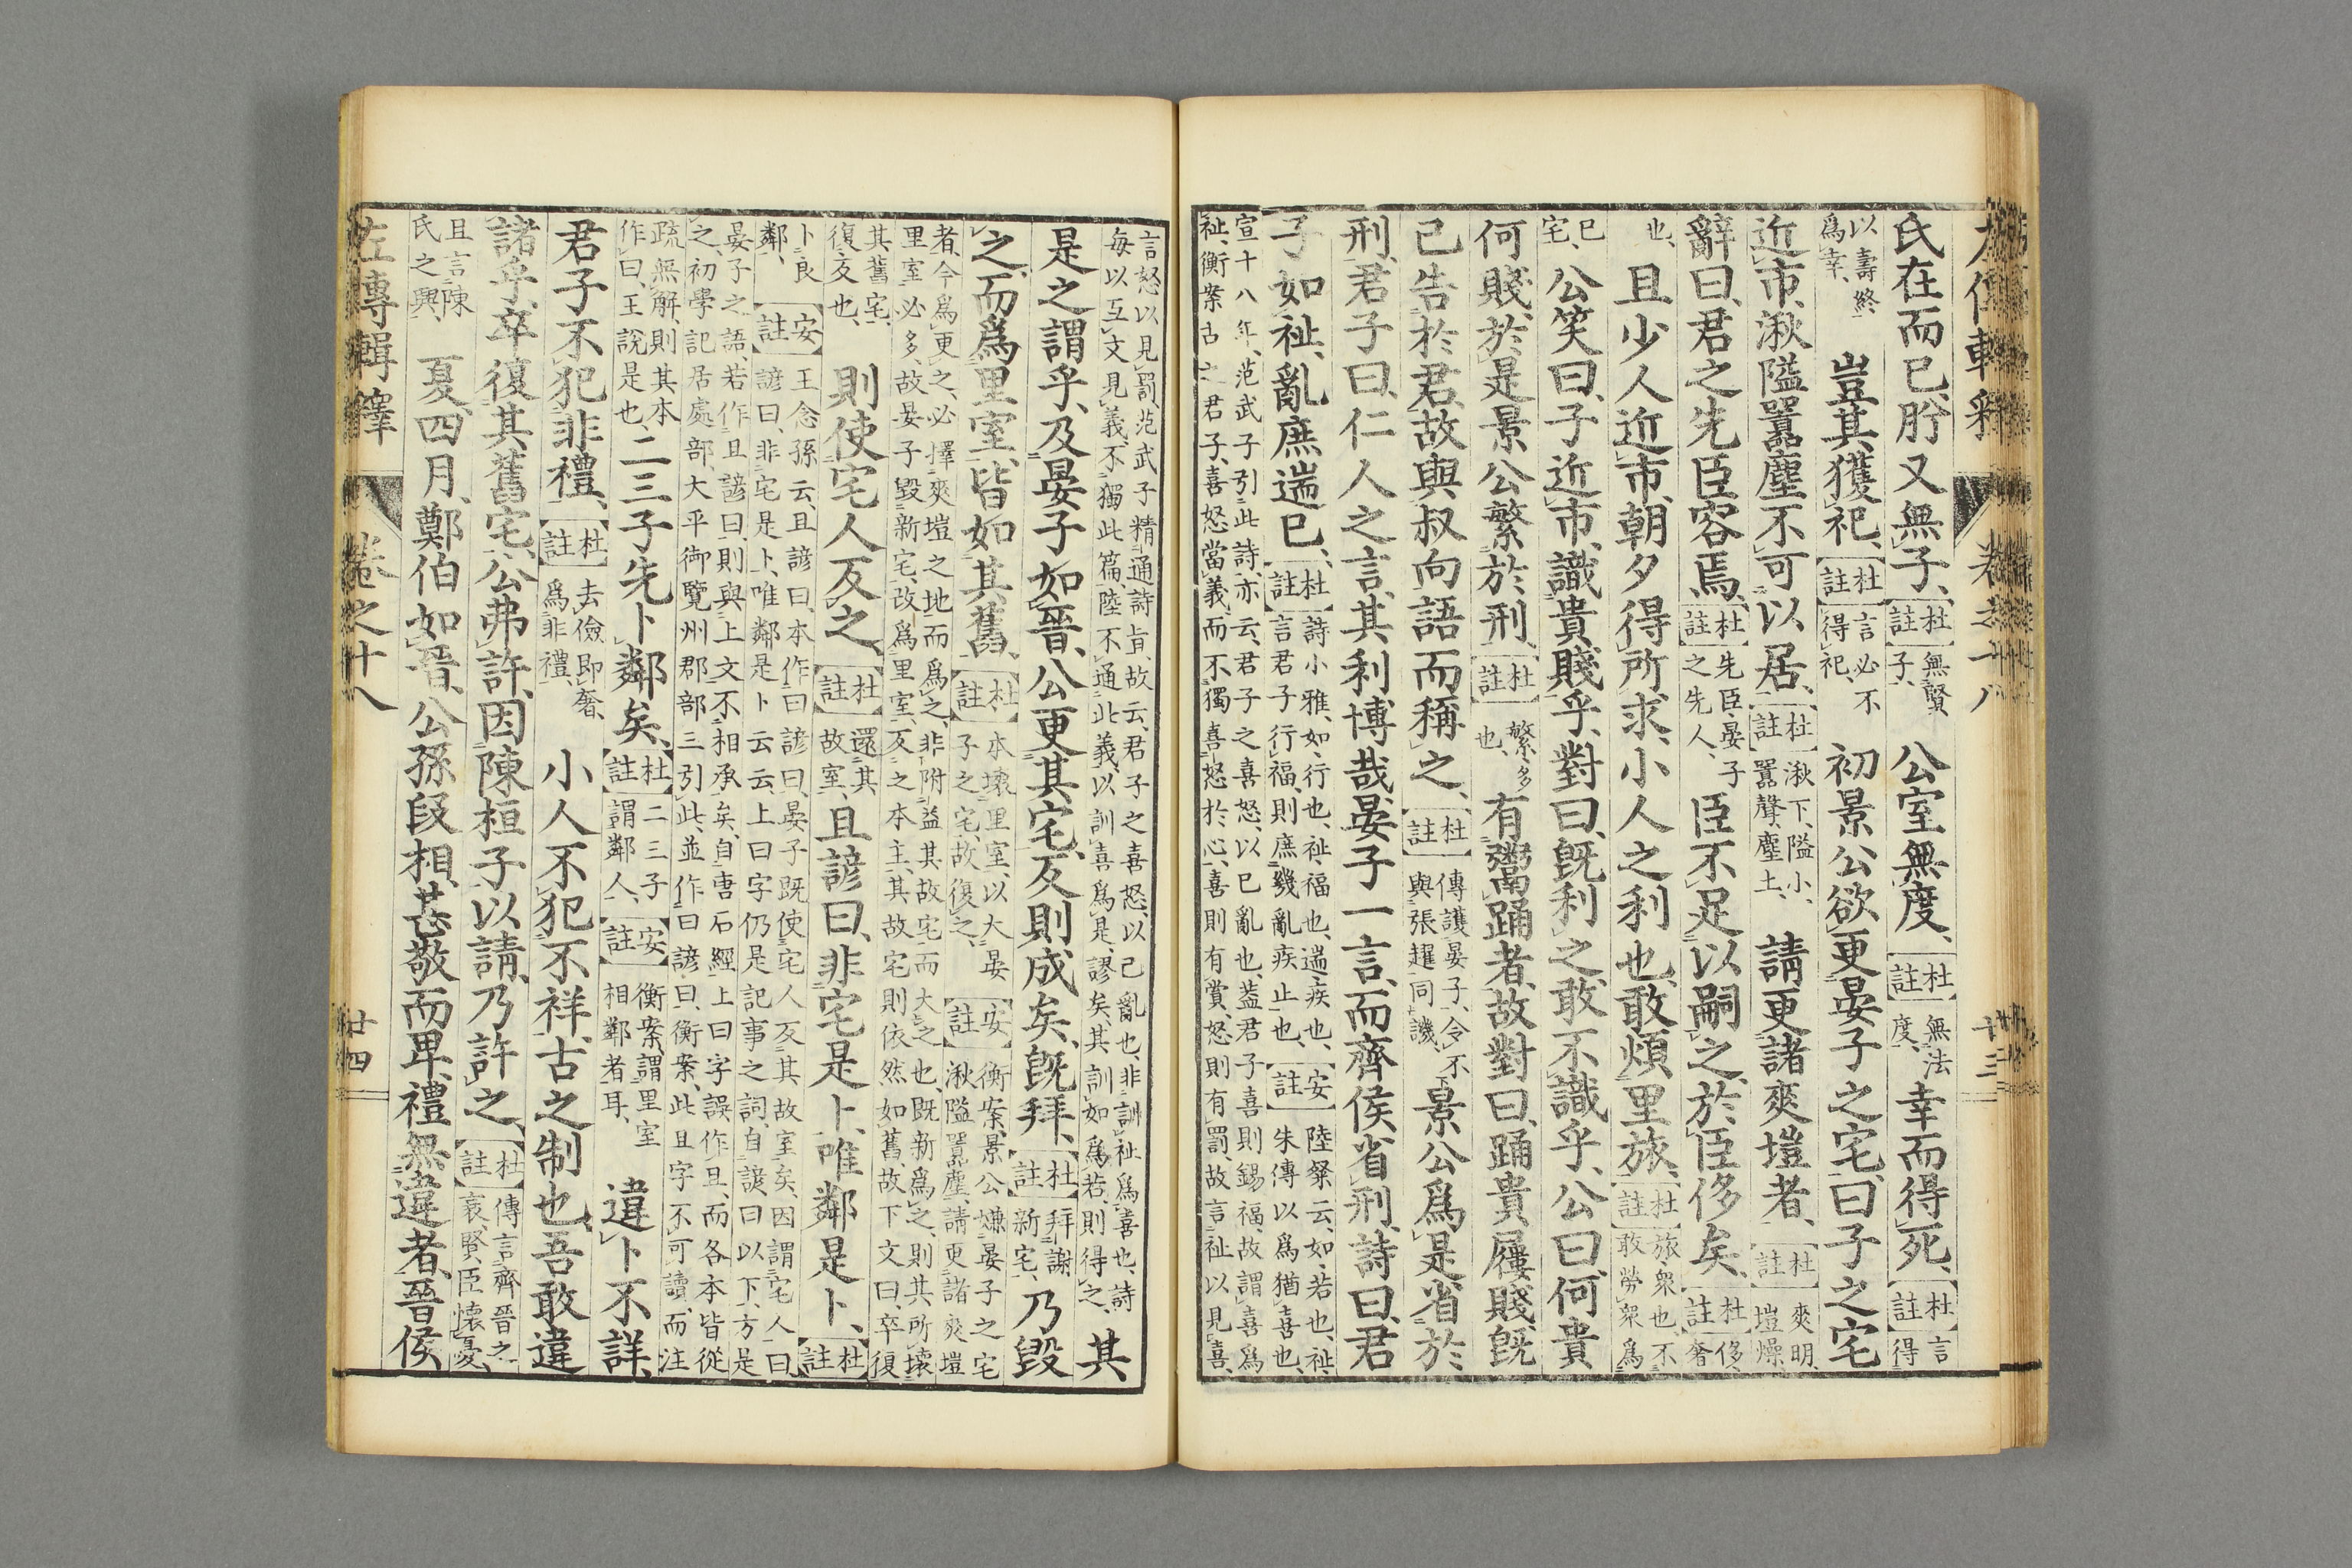 氏在而已、肸又無子、【杜註】無賢子、公室無度、【杜註】無法度、幸而得死、【杜註】言得
以壽終爲幸、豈其獲祀、【杜註】言必不得祀、初景公欲更晏子之宅、曰、子之宅
近市、湫隘囂塵、不可以居、【杜註】湫下、隘小、囂聲、塵土、請更諸爽塏者、【杜註】爽明、塏燥、
辭曰、君之先臣容焉、【杜註】先臣、晏子之先人、臣不足以嗣之、於臣侈矣、【杜註】侈、奢
也、且少人近市、朝夕得所求、小人之利也、敢煩里旅、【杜註】旅、衆也、不敢勞衆爲
己宅、公笑曰、子近市、識貴賤乎、對曰、既利之、敢不識乎、公曰、何貴
何賤、於是景公繁於刑、【杜註】繁、多也、有鬻踊者、故對曰、踊貴、屨賤、既
已告於君、故與叔向語而稱之、【杜註】傳護晏子、令不與張趯同譏、景公爲是省於
刑、君子曰、仁人之言、其利博哉、晏子一言、而齊侯省刑、詩曰、君
子如祉、亂庶遄已、【杜註】詩小雅、如、行也、祉、福也、遄、疾也、言君子行福、則庶幾亂疾止也、【安註】陸粲云、如、若也、祉、朱傳以爲猶喜也、
宣十八年、范武子引此詩亦云、君子之喜怒、以已亂也、蓋君子喜則錫福、故謂喜爲
祉、衡案古之君子、喜怒當義、而不獨喜怒於心、喜則有賞、怒則有罰、故言祉以見喜、
言怒以見罰、范武子精通詩旨、故云、君子之喜怒、以已亂也、非訓祉爲喜也、詩
每以互文見義、不獨此篇、陸不通此義、以訓喜爲是、謬矣、其訓如爲若、則得之、其
是之謂乎、及晏子如晉、公更其宅、反則成矣、既拜、【杜註】拜謝新宅、乃毀
之、而爲里室、皆如其舊、【杜註】本壞里室、以大晏子之宅、故復之、【安註】衡案、景公嫌晏子之宅湫隘囂塵、請更諸爽塏
者、今爲更之、必擇爽塏之地而爲之、非附益其故宅而大之也、既新爲之、則其所壞
里室必多、故晏子毀新宅、改爲里室、反之本主、其故宅則依然如舊、故下文曰、卒復
其舊宅、復、反也、則使宅人反之、【杜註】還其故室、且諺曰、非宅是卜、唯鄰是卜、【杜註】
卜良鄰、【安註】王念孫云、且諺曰、本作曰諺曰、晏子既使宅人反其故室矣、因謂宅人曰、諺曰、非宅是卜、唯鄰是卜云云、上曰字仍是記事之詞、自諺曰以下、方是
晏子之語、若作且諺曰、則與上文不相承矣、自唐石經上曰字誤作且、而各本皆從
之、初學記居處部、大平御覽州郡部三引此、並作曰諺曰、衡案、此且字不可讀、而注
疏無解、則其本作曰、王說是也、二三子先卜鄰矣、【杜註】二三子謂鄰人、【安註】衡案、謂里室相鄰者耳、違卜不詳、
君子不犯非禮、【杜註】去儉即奢、爲非禮、小人不犯不祥、古之制也、吾敢違
諸乎、卒復其舊宅、公弗許、因陳桓子以請、乃許之、【杜註】傳言齊晉之衰、賢臣懷憂、
且言陳氏之興、夏、四月、鄭伯如晉、公孫段相、甚敬而卑、禮無違者、晉侯
左傳輯釋
卷之十八
廿四